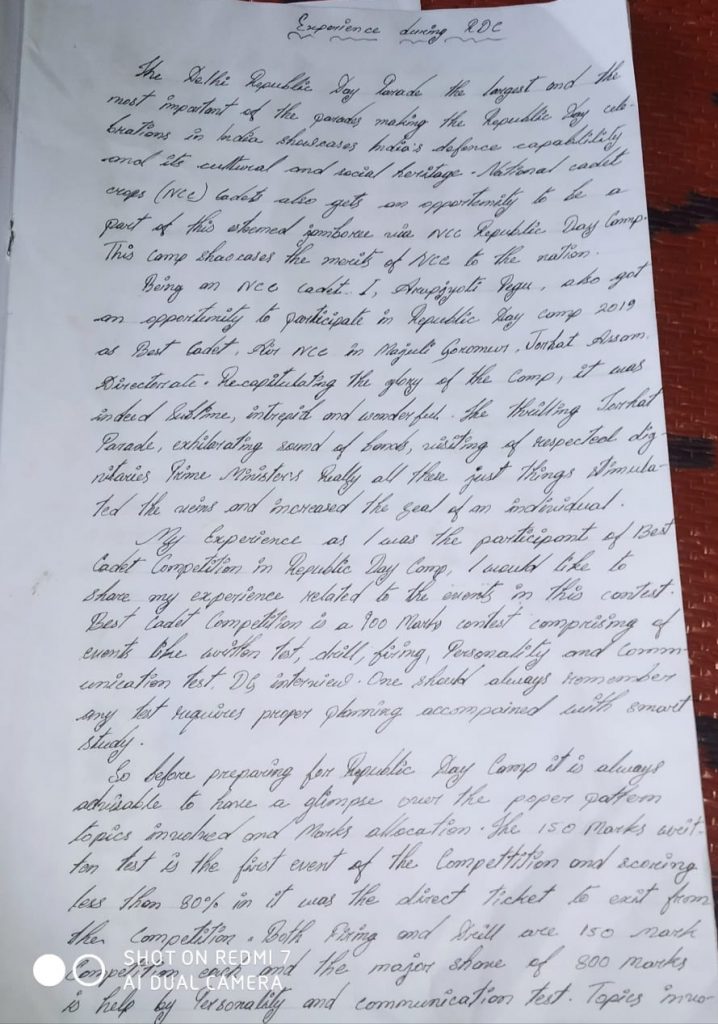 Experience during RDC
The Delhi Republic Day Parade the largest and the
most important of the parades making the Republic Day cele-
brations in India showcases India's defence capablility
and its cultural and social heritage. National cadet
crops (NCC) Cadets also gets an opportunity to be a
part of this esteemed jamboree via NCC Republic Day Camp.
This camp showcases the merits of NCC to the nation.
Being an NCC cadet I, Arupjyoti Pegu, also got
an opportunity to participate in Republic Day camp 2019
as Best Cadet, Air NCC in Majuli Goromur, Jorhat Assam
Directorate. Recapitulating the glory of the Camp, it was
indeed Sublime, intrepid and wonderful. The thrilling Jorhat
Parade, exhilarating sound of bands, visiting of respected dig-
nitaries Prime Ministers Really all these just things stimula-
ted the veins and increased the zeal of an individual.
My Experience as I was the participant of Best
Cadet Competition in Republic Day Camp, I would like to
share my experience related to the events in this contest.
Best Cadet Competition is a 900 Marks contest comprising of
events like written test, drill, firing, Personality and Comm-
unication test, DG interview. One should always remember
any test requires proper planning accompained with smart
study.
So before preparing for Republic Day Camp it is always
advisable to have a glimpse over the paper pattern
topics involved and Marks allocation. The 150 Marks writ-
ten test is the first event of the Competition and scoring
less than 80% in it was the direct ticket to exit from
the Competition. Both Firing and Drill are 150 mark
Competition each and the major share of 800 Marks
is help by Personality and communication test. Topics invo-
SHOT ON REDMI 7
AI DUAL CAMERA